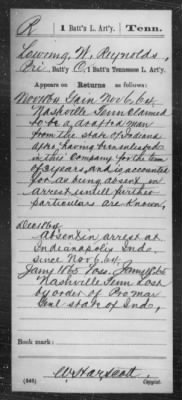 R | 1 Batt's L. Art'y. | Tenn.
Lowing, W. Reynolds,
Pri, Batt'y C, 1 Batt'n Tennessee L. Art'y.
Appears on Returns as follows:
Nov 1864 Gain Nov 6, 64
Nashville Tenn Claimed
to be a drafted man
from the state of Indiana
after having reenlisted
in this Company for the term
of 3 years, and is accounted
for as being absent in
arrest until further
particulars are known,
Dec 1864
Absent in arrest at
Indianapolis Ind.
since Nov 6, 64
Jany 1865 Loss. Jany 1865
Nashville Tenn Lost
by order of Pro mar
Genl state of Ind,
Book mark:
(546)
Copyist.